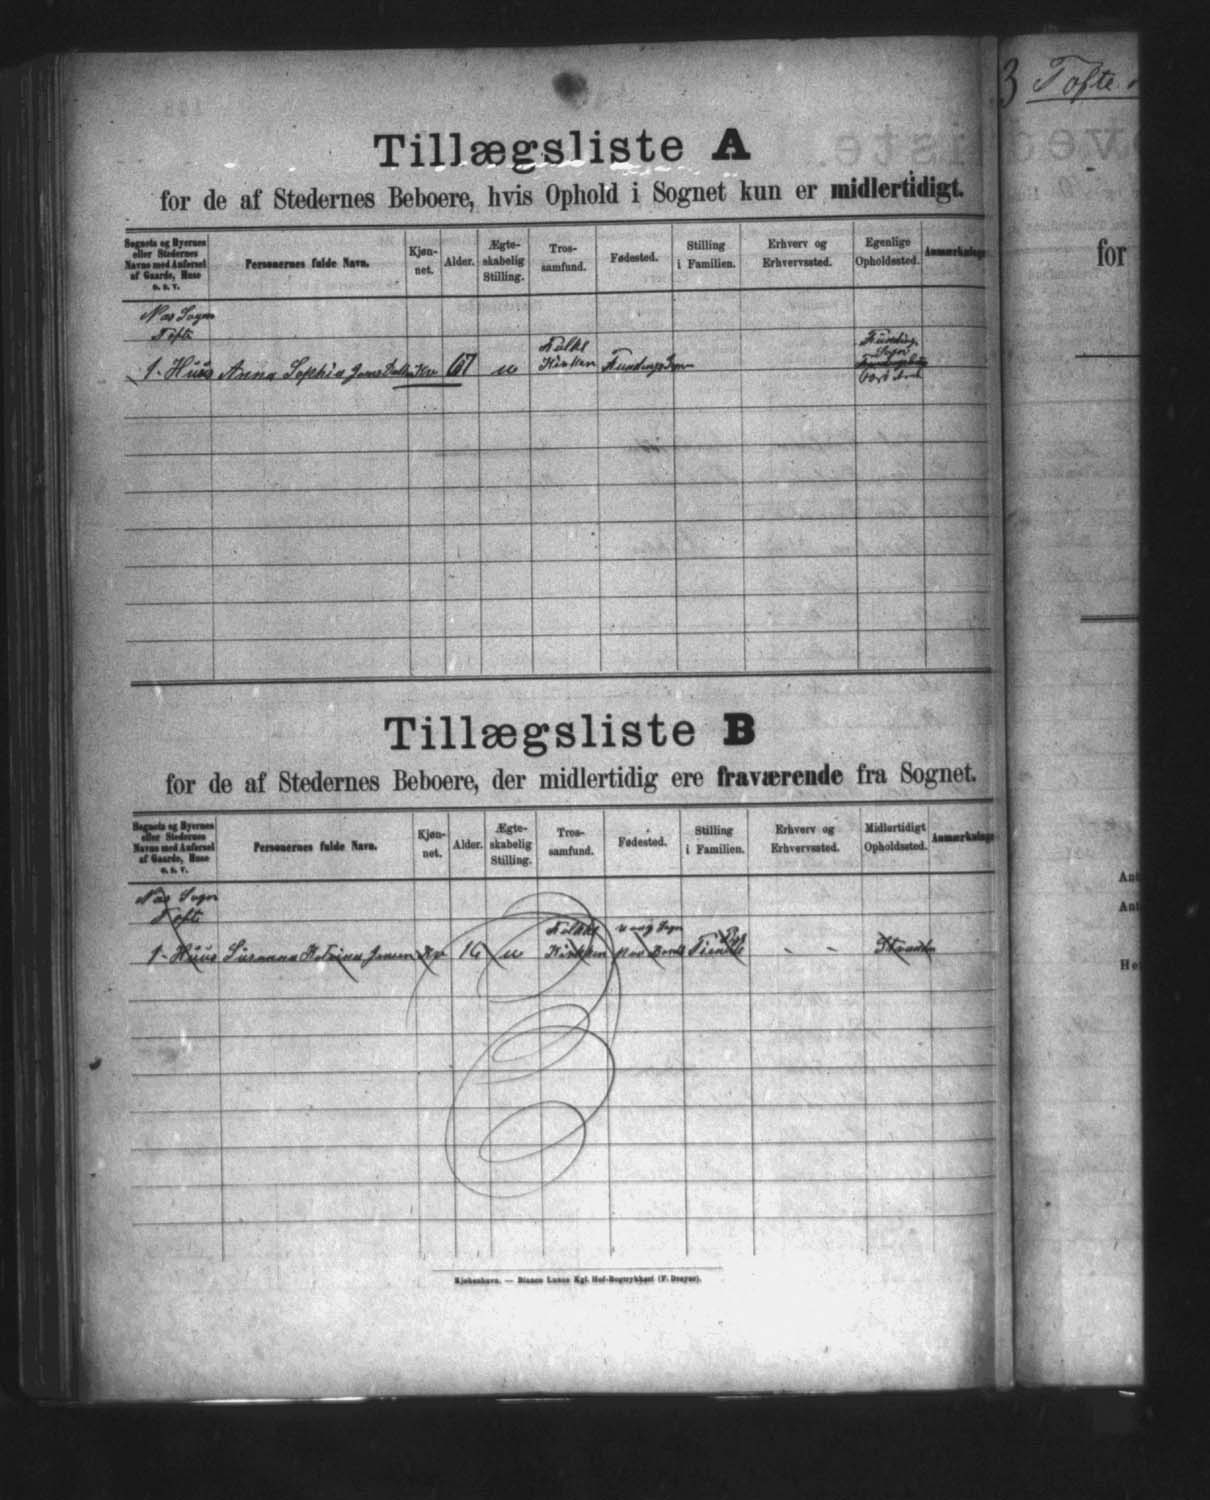 Tillægsliste A
for de af Stedernes Beboere, hvis Ophold i Sognet kun er midlertidigt.
Sognets og Byernes eller Stedernes Navne med Anførsel af Gaarde, Huse o. s. v.
Personernes fulde Navn.
Kjønnet.
Alder.
Ægteskabelig Stilling.
Trossamfund.
Fødested.
Stilling i Familien.
Erhverv og Erhvervssted.
Egenlige Opholdssted.
Anmærkninge
Næs Sogn
Tofte
1 - Huus Anna Sophia Kv 67 u Folke Kirken Sogn
Tillægsliste B
for de af Stedernes Beboere, der midlertidig ere fraværende fra Sognet.
Sognets og Byernes eller Stedernes Navne med Anførsel af Gaarde, Huse o. s. v.
Personernes fulde Navn.
Kjønnet.
Alder.
Ægteskabelig Stilling.
Trossamfund.
Fødested.
Stilling i Familien.
Erhverv og Erhvervssted.
Midlertidigt Opholdssted.
Anmærkninge
Næs Sogn
Tofte
1 - Huus Susanna Katrina Jensen Kv 16 u Folke Kirken
Kjøbenhavn. — Bianco Lunos Kgl. Hof-Bogtrykkeri (F. Dreyer).
3 Tofte
for